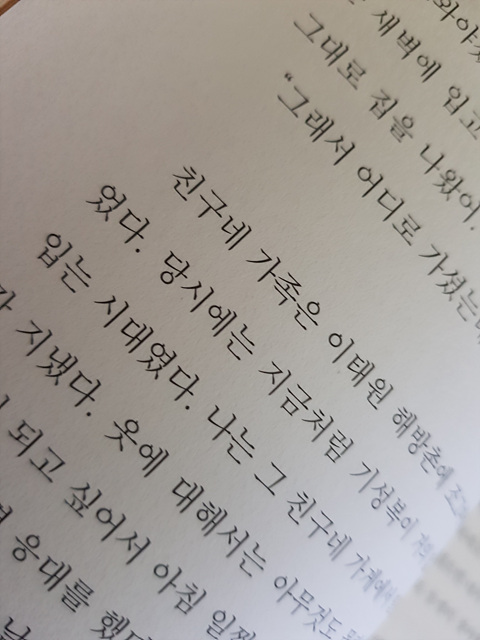 새벽에 입고
그대로 집을 나왔어.
“그래서 어디로 가셨는데
친구네 가족은 이태원 해방촌에
었다. 당시에는 지금처럼 기성복이
입는 시대였다. 나는 그 친구네 가게에서
지냈다. 옷에 대해서는 아무것도
되고 싶어서 아침 일찍
응대를 했다